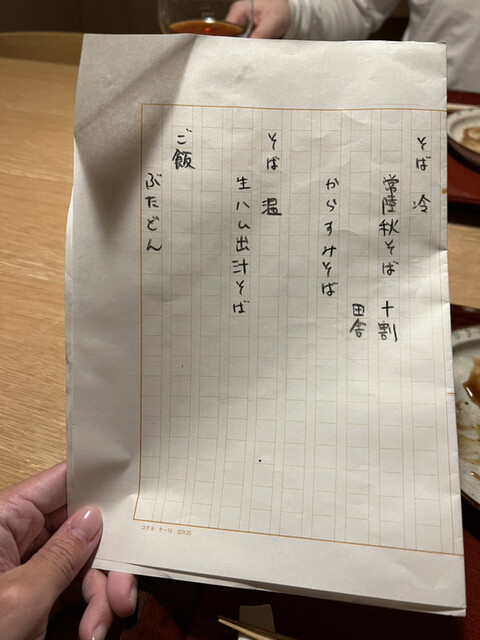 そば 冷
常陸秋そば 十割
田舎
からすみそば
そば 温
生ハム出汁そば
ご飯
ぶたどん
コクヨ ケ-10 20×20